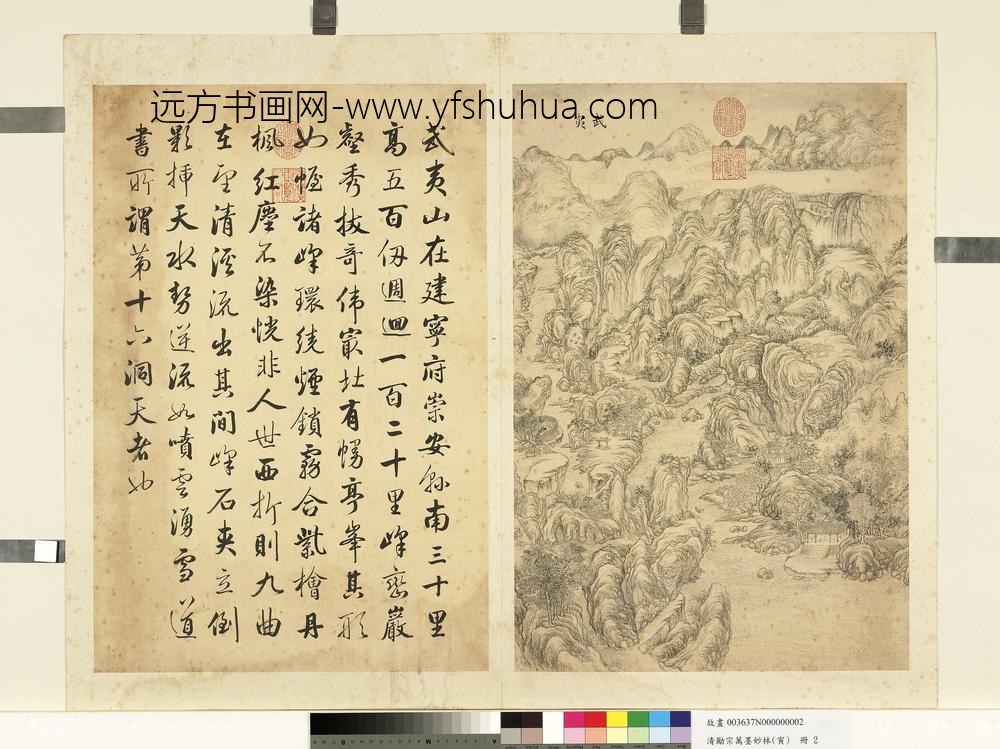 远方书画网-www.yfshuhua.com
武夷
武夷山在建寧府崇安縣南三十里
高五百仞週迴一百二十里峰巒巖
壑秀拔奇偉最壯有幔亭峯其形
如幄諸峰環繞煙鎖霧合紫檜丹
楓紅塵不染恍非人世西折則九曲
在望清溪流出其間峰石夾立倒
影插天水勢逆流如噴雲湧雪道
書所謂第十六洞天者也
故畫 003637N000000002
清勵宗萬墨妙林(寅) 冊 2